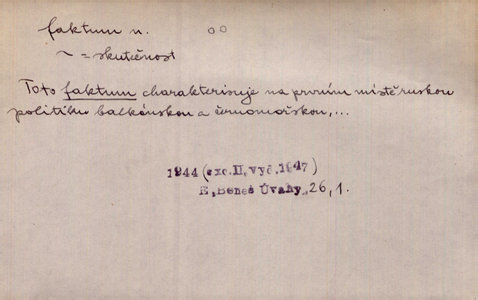 faktum n. oo
~ = skutečnost
Toto faktum charakterisuje na prvním místě ruskou
politiku balkánskou a černomořskou,...
1944 (exc. II, vyd. 1947)
E, Beneš Úvahy, 26, 1.